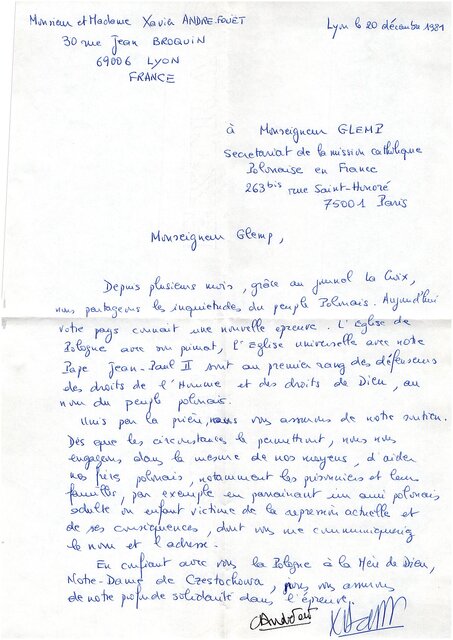 Monsieur et Madame Xavier ANDRE-FOUËT
Lyon le 20 décembre 1981
30 rue Jean BROQUIN
69006 LYON
FRANCE
à Monseigneur GLEMP
Secretariat de la mission catholique
Polonaise en France
263 bis rue Saint-Honoré
75001 Paris
Monseigneur Glemp,
Depuis plusieurs mois, grâce au journal La Croix,
nous partageons les inquietudes du peuple Polonais. Aujourd'hui
votre pays connait une nouvelle épreuve. L'Eglise de
Pologne avec son primat, l'Eglise universelle avec notre
Pape Jean-Paul II sont au premier rang des défenseurs
des droits de l'Homme et des droits de Dieu, au
nom du peuple polonais.
Unis par la prière, nous vous assurons de notre soutien.
Dès que les circonstances le permettront, nous nous
engageons dans la mesure de nos moyens, d'aider
nos frères polonais, notamment les prisonniers et leur
familles, par exemple en parrainant un ami polonais
adulte ou enfant victime de la repression actuelle et
de ses conséquences, dont vous me communiqueriez
le nom et l'adresse.
En confiant avec vous la Pologne à la Mère de Dieu,
Notre-Dame de Czestochowa, nous vous assurons
de notre profonde solidarité dans l'épreuve.